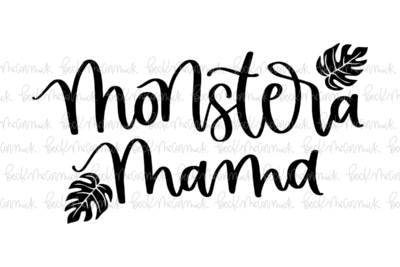 Monstera
Mama